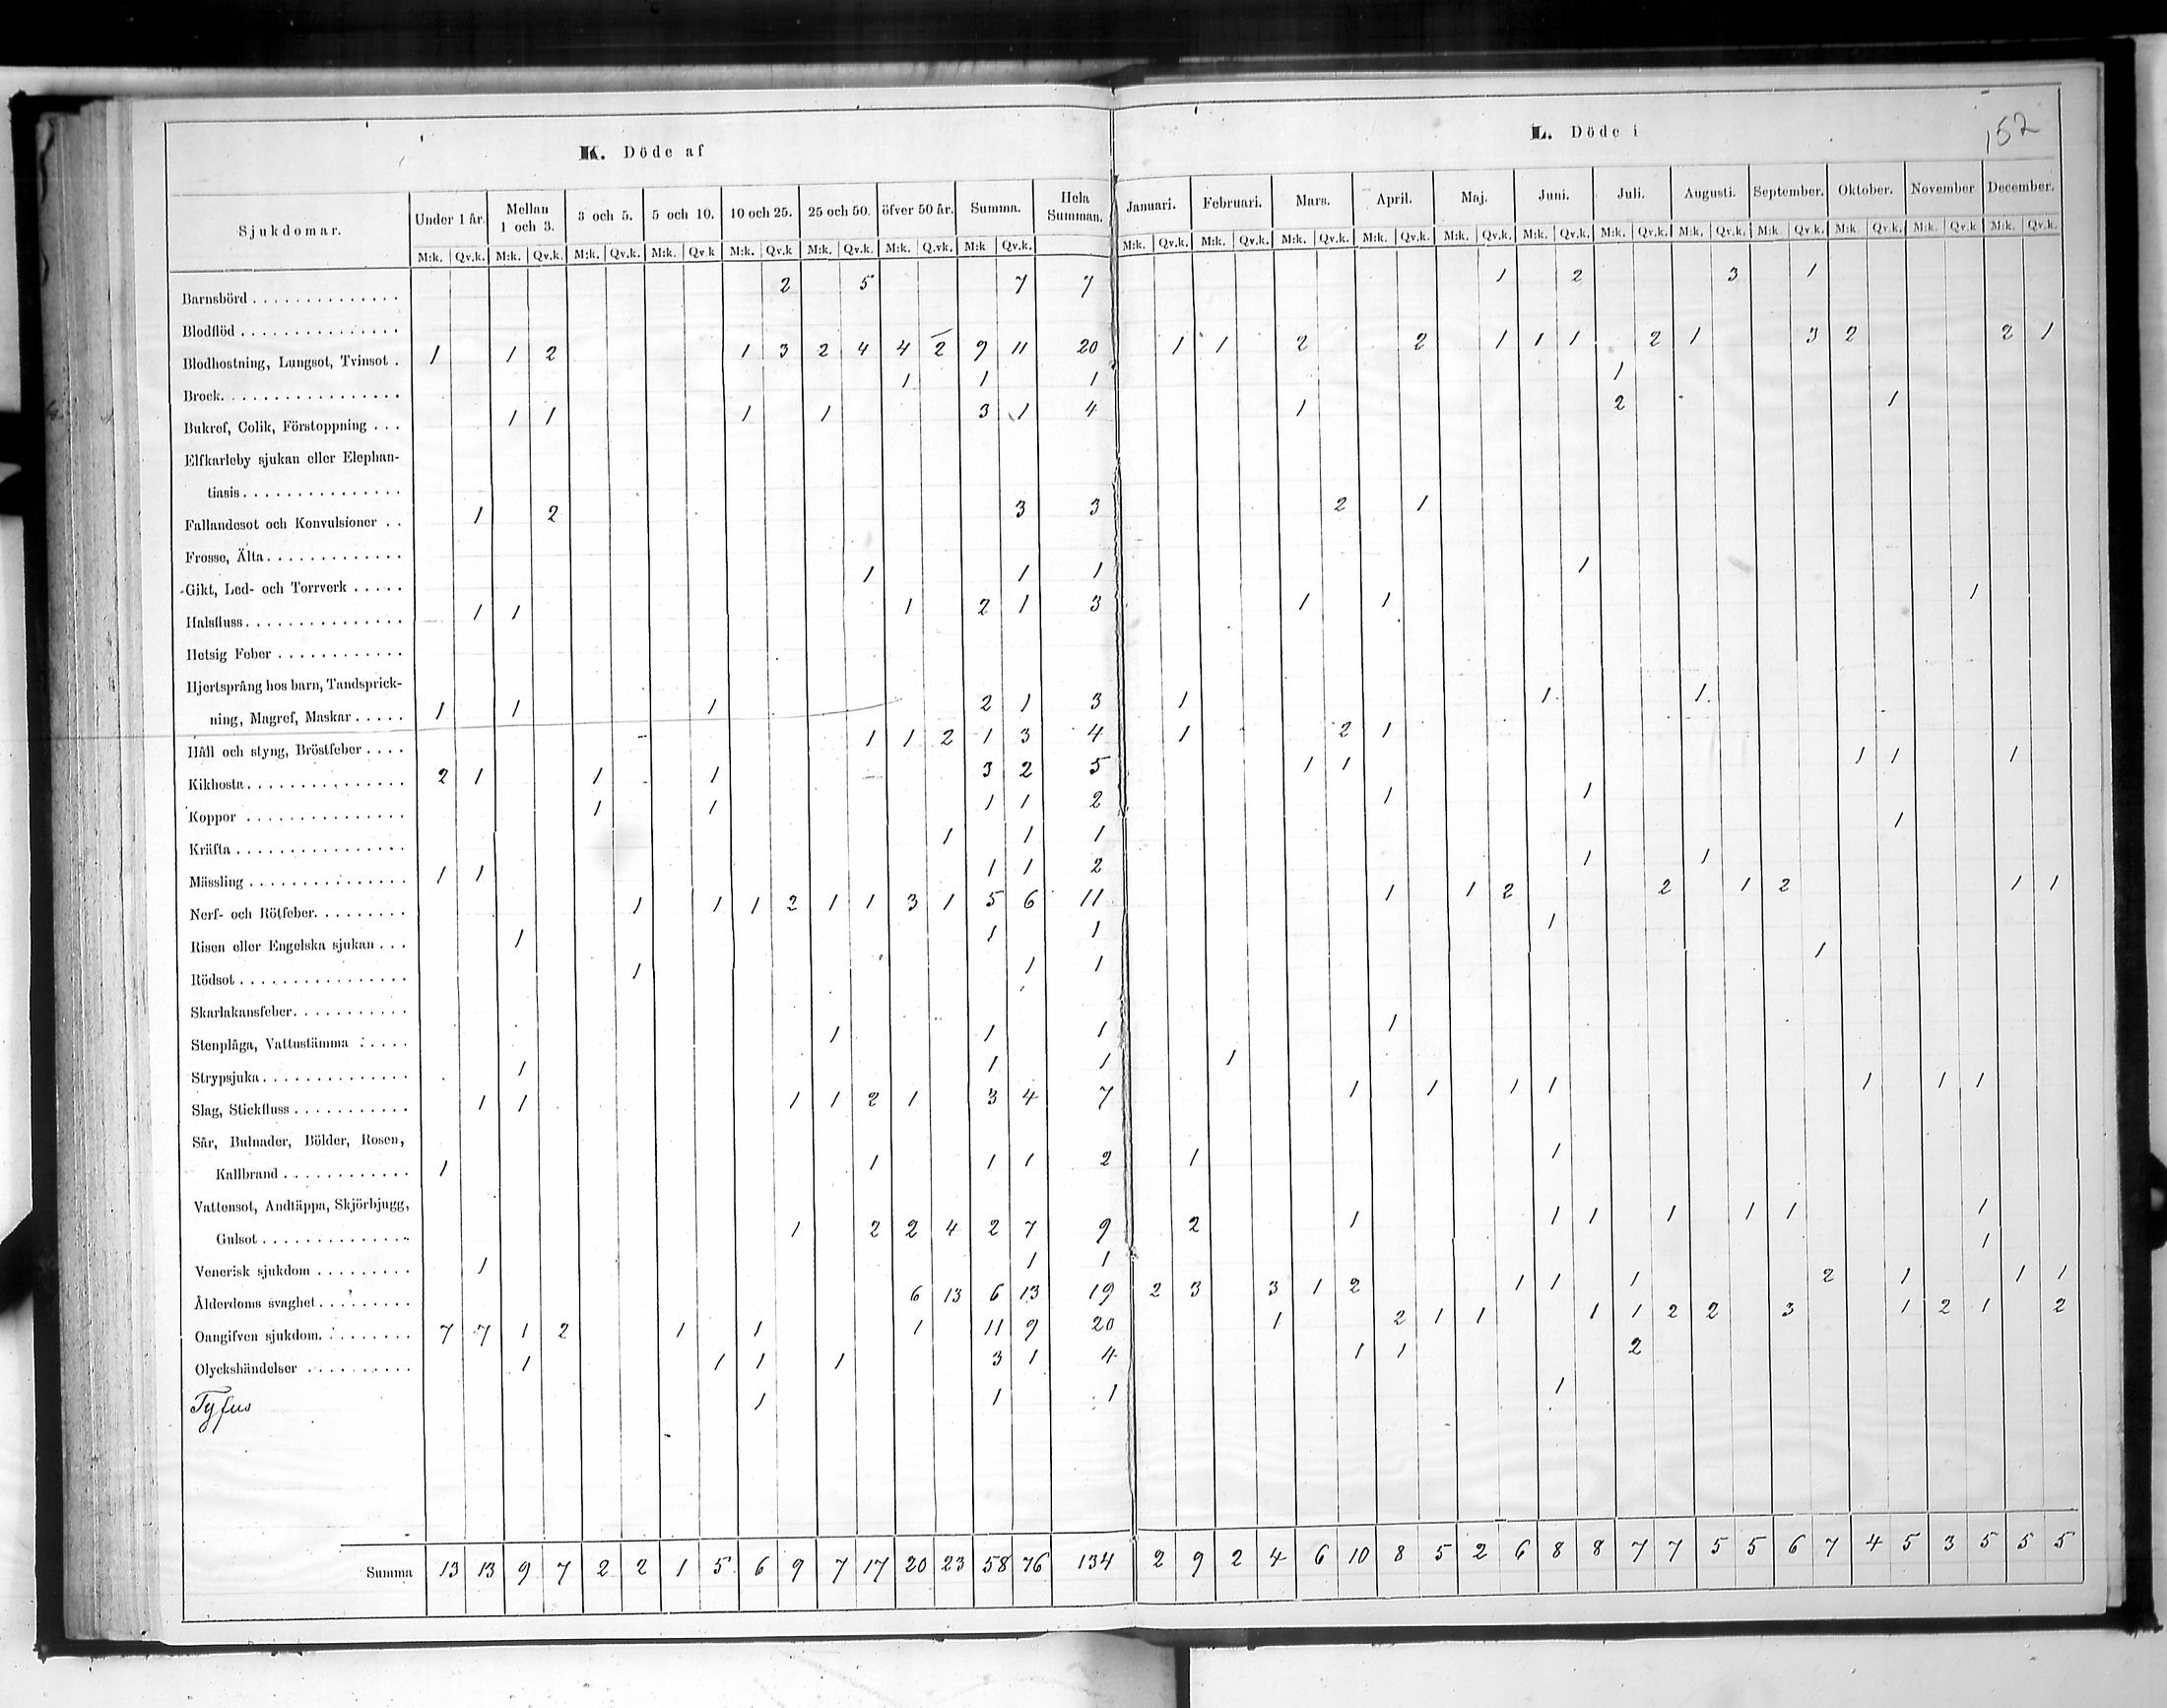 152
K. Döde af
L. Döde i
Sjukdomar. Under 1 år. Mellan 1 och 3. 3 och 5. 5 och 10. 10 och 25. 25 och 50. öfver 50 år. Summa. Hela Summan. Januari. Februari. Mars. April. Maj. Juni. Juli. Augusti. September. Oktober. November December.
M:k. Qv.k. M:k. Qv.k. M:k. Qv.k. M:k. Qv.k M:k. Qv.k M:k. Qv.k. M:k. Q.vk. M:k Qv.k. M:k. Qv.k. M:k. Qv.k. M:k. Qv.k. M:k. Qv.k. M:k. Qv.k. M:k. Qv.k. M:k. Qv.k. M:k. Qv.k. M:k. Qv.k. M:k. Qv.k. M:k. Qv.k M:k. Qv.k.
Barnsbörd 2 5 7 7 1 2 3 1
Blodflöd
Blodhostning, Lungsot, Tvinsot . 1 1 2 1 3 2 4 4 2 9 11 20 1 1 2 2 1 1 1 2 1 3 2 2 1
Brock 1 1 1 1
Bukref, Colik, Förstoppning . . . 1 1 1 1 3 1 4 1 2 1
Elfkarleby sjukan eller Elephan-
tiasis
Fallandesot och Konvulsioner . . 1 2 3 3 2 1
Frosse, Älta
Gikt, Led- och Torrverk 1 1 1 1
Halsfluss 1 1 1 2 1 3 1 1 1
Hetsig Feber
Hjertsprång hos barn, Tandsprick-
ning, Magref, Maskar 1 1 1 2 1 3 1 1 1
Håll och styng, Bröstfeber 1 1 2 1 3 4 1 2 1
Kikhosta 2 1 1 1 3 2 5 1 1 1 1 1
Koppor 1 1 1 1 2 1 1
Kräfta 1 1 1 1
Mässling 1 1 1 1 2 1 1
Nerf- och Rötfeber 1 1 1 2 1 1 3 1 5 6 11 1 1 2 2 1 2 1 1
Risen eller Engelska sjukan . . . 1 1 1 1
Rödsot 1 1 1 1
Skarlakansfeber
Stenplåga, Vattustämma 1 1 1 1
Strypsjuka 1 1 1 1
Slag, Stickfluss 1 1 1 1 2 1 3 4 7 1 1 1 1 1 1 1
Sår, Bulnader, Bölder, Rosen,
Kallbrand 1 1 1 1 2 1 1
Vattensot, Andtäppa, Skjörbjugg,
Gulsot 1 2 2 4 2 7 9 2 1 1 1 1 1 1 1
Venerisk sjukdom 1 1 1 1
Ålderdoms svaghet 6 13 6 13 19 2 3 3 1 2 1 1 1 2 1 1 1
Oangifven sjukdom 7 7 1 2 1 1 1 11 9 20 1 2 1 1 1 1 2 2 3 1 2 1 2
Olyckshändelser 1 1 1 1 3 1 4 1 1 2
Tyfus 1 1 1 1
Summa 13 13 9 7 2 2 1 5 6 9 7 17 20 23 58 76 134 2 9 2 4 6 10 8 5 2 6 8 8 7 7 5 5 6 7 4 5 3 5 5 5